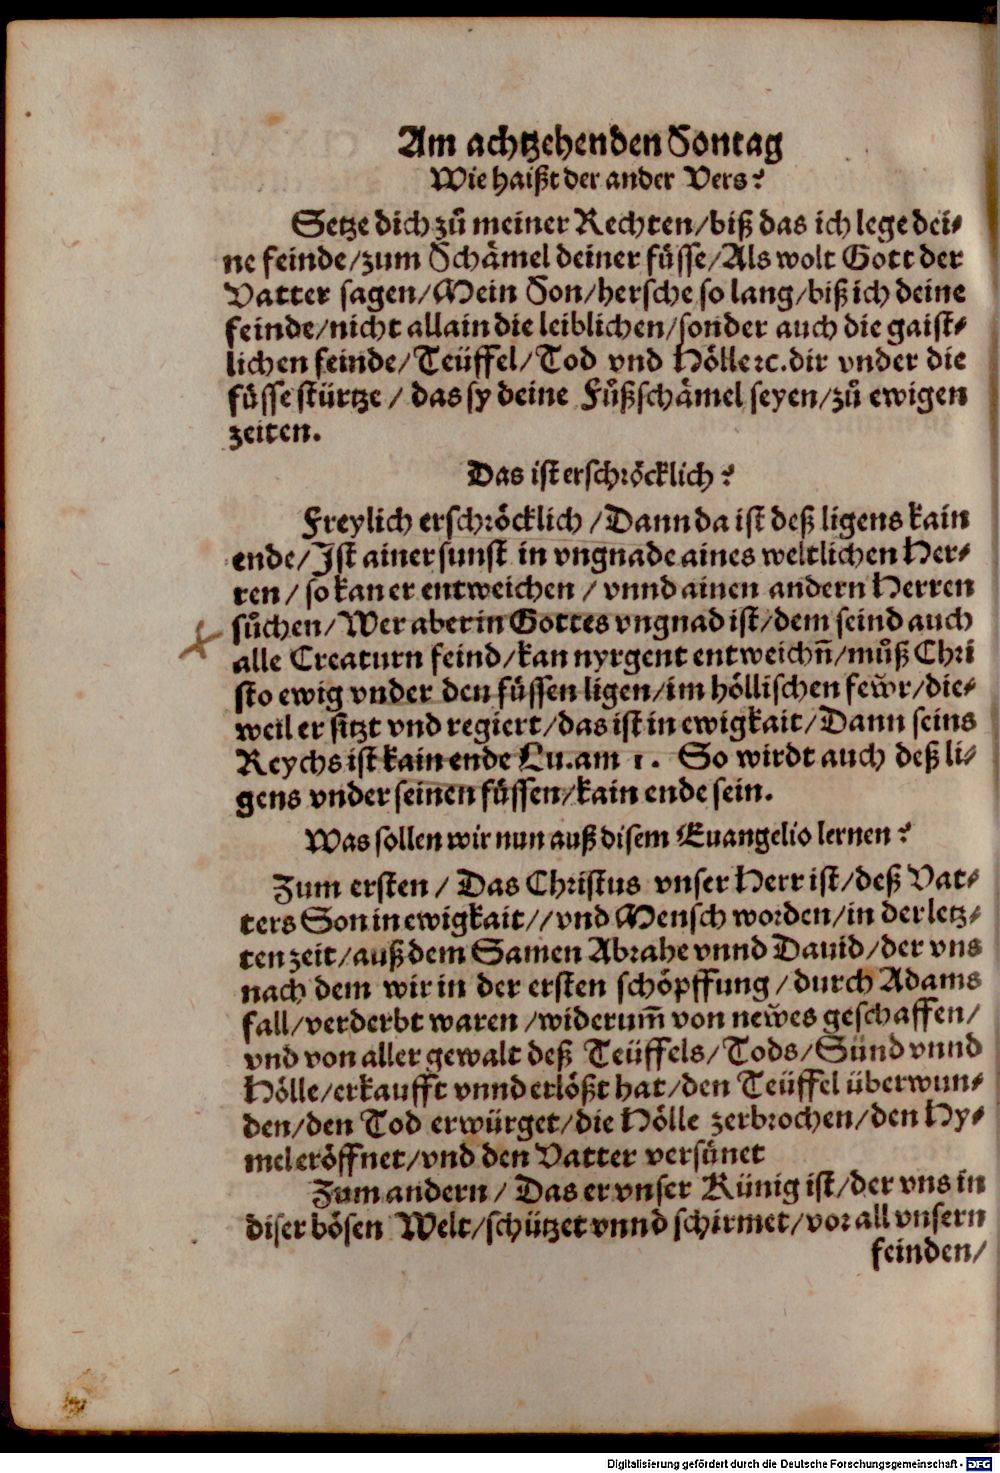 Am achtzehenden Sontag
Wie haißt der ander Vers?
Setze dich zů meiner Rechten/biß das ich lege dei-
ne feinde/zum Schämel deiner füsse/Als wolt Gott der
Vatter sagen/Mein Son/hersche so lang/biß ich deine
feinde/nicht allain die leiblichen/sonder auch die gaist-
lichen feinde/Teüffel/Tod vnd Hölle ꝛc. dir vnder die
füsse stürtze / das sy deine Fůßschämel seyen/zů ewigen
zeiten.
Das ist erschröcklich?
Freylich erschröcklich /Dann da ist deß ligens kain
ende/Ist ainer sunst in vngnade aines weltlichen Her-
ren / so kan er entweichen / vnnd ainen andern Herren
sůchen/Wer aber in Gottes vngnad ist/dem seind auch
alle Creaturn feind/kan nyrgent entweichñ/můß Chri
sto ewig vnder den füssen ligen/im höllischen fewr/die-
weil er sitzt vnd regiert/das ist in ewigkait/Dann seins
Reychs ist kain ende Lu. am 1. So wirdt auch deß li-
gens vnder seinen füssen/kain ende sein.
Was sollen wir nun auß disem Euangelio lernen?
Zum ersten / Das Christus vnser Herr ist/deß Vat-
ters Son in ewigkait//vnd Mensch worden/in der letz-
ten zeit/auß dem Samen Abrahe vnnd Dauid/der vns
nach dem wir in der ersten schöpffung /durch Adams
fall/verderbt waren /widerum̃ von newes geschaffen/
vnd von aller gewalt deß Teüffels/Tods/Sünd vnnd
Hölle/erkaufft vnnd erlößt hat/den Teüffel überwun-
den/den Tod erwürget/die Hölle zerbrochen/den Hy-
mel eröffnet/vnd den Vatter versünet
Zum andern / Das er vnser Künig ist/der vns in
diser bösen Welt/schützet vnnd schirmet/vor all vnsern
feinden/
Digitalisierung gefördert durch die Deutsche Forschungsgemeinschaft - DFG